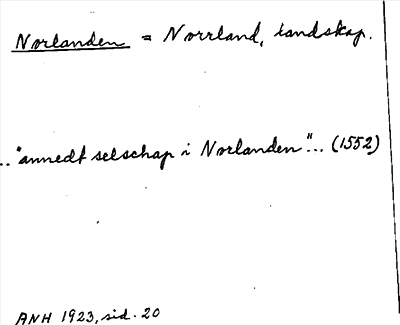 Norlanden = Norrland, landskap.
.."annedt selschap i Norlanden"... (1552)
ANH 1923, sid. 20